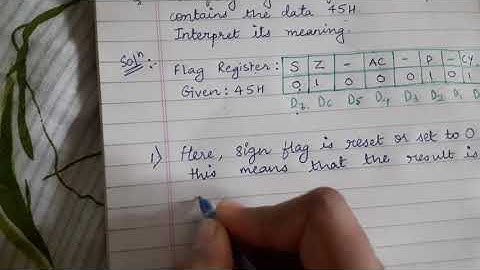 contains the data 45H
Interpret its meaning.
Solⁿ:- Flag Register: S Z - AC - P - CY
Given: 45H 0 1 0 0 0 1 0 1
D7 D6 D5 D4 D3 D2 D1
1) Here, sign flag is reset or set to 0
this means that the result is